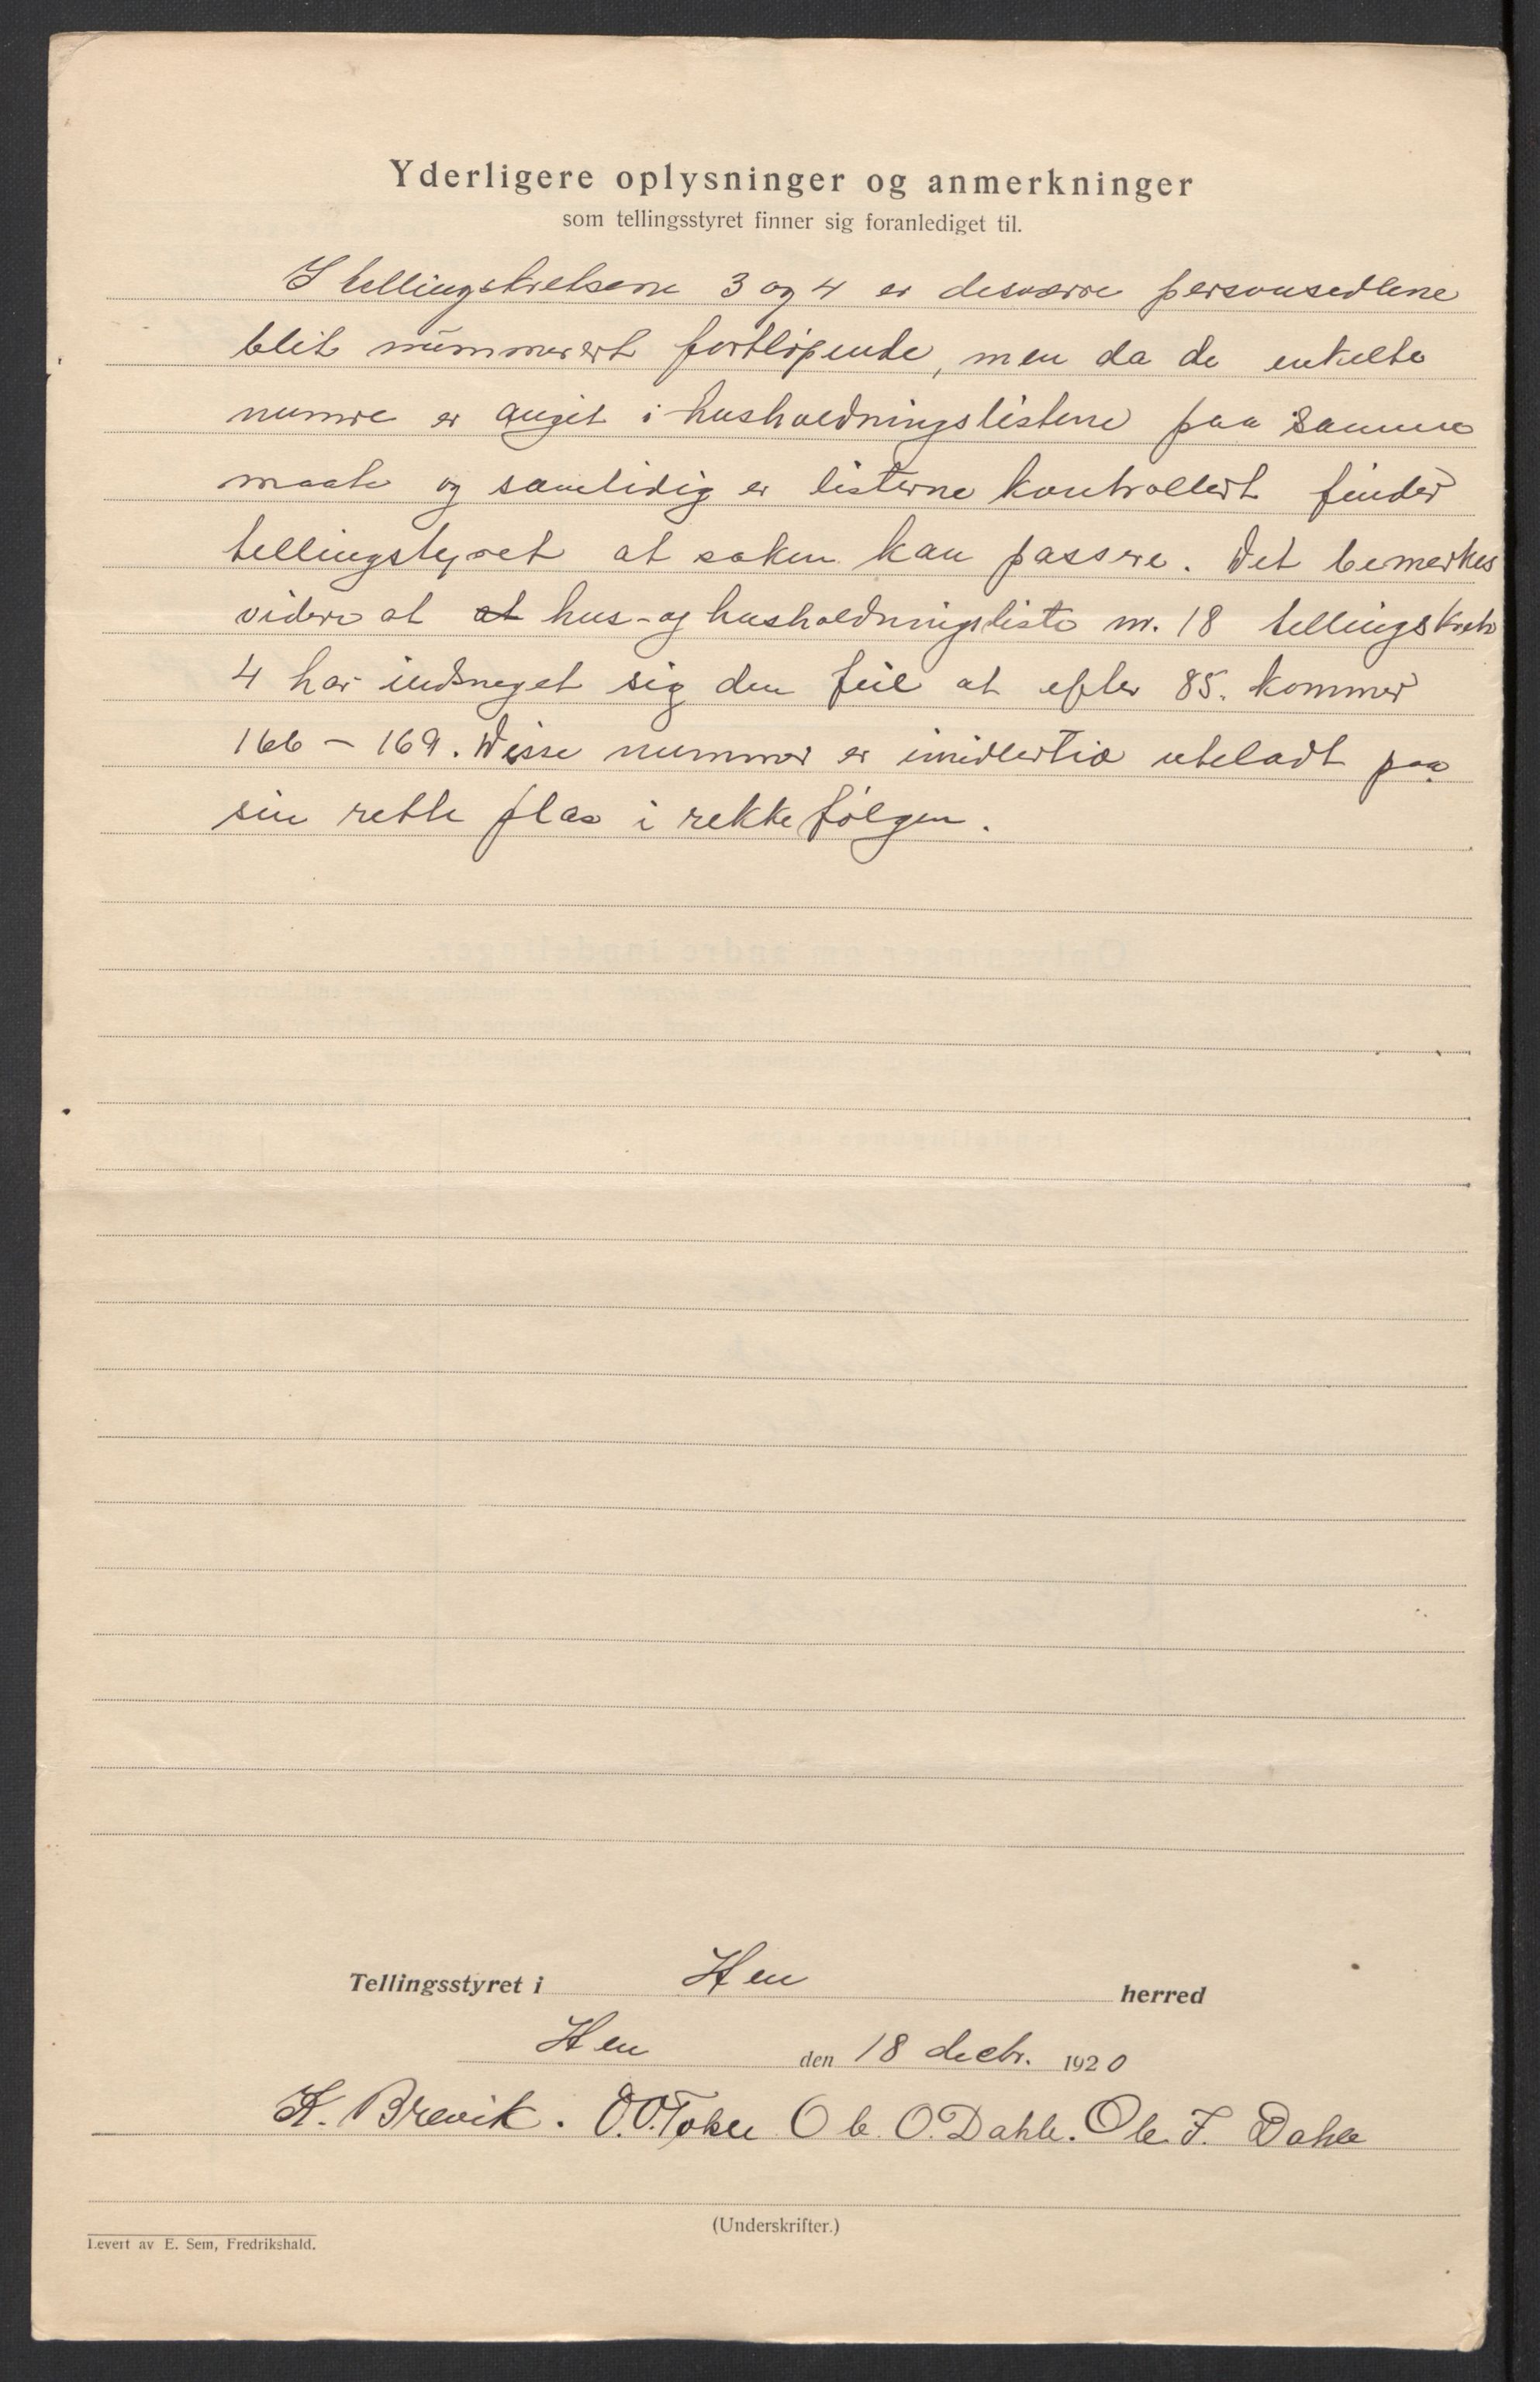 Yderligere oplysninger og anmerkninger
som tellingsstyret finner sig foranlediget til.
I tellingskredsene 3 og 4 er desværre personsedlene
blit nummerert fortløpende, men da de enkelte
numre er angit i husholdningslistene paa samme
maate og samtidig er listerne kontrollert finder
tellingstyret at saken kan passere. Det bemerkes
videre at at hus- og husholdningsliste nr. 18 tellingskreds
4 har indsneget sig den feil at efter 85. kommer
166 – 169. Disse nummer er imidlertid uteladt paa
sin rette plas i rekkefølgen.
Tellingsstyret i Hen herred
Hen den 18 decbr. 1920
K. Brevik. O.O. Tokle Ole O. Dahle. Ole J. Dahle
(Underskrifter.)
Levert av E. Sem, Fredrikshald.